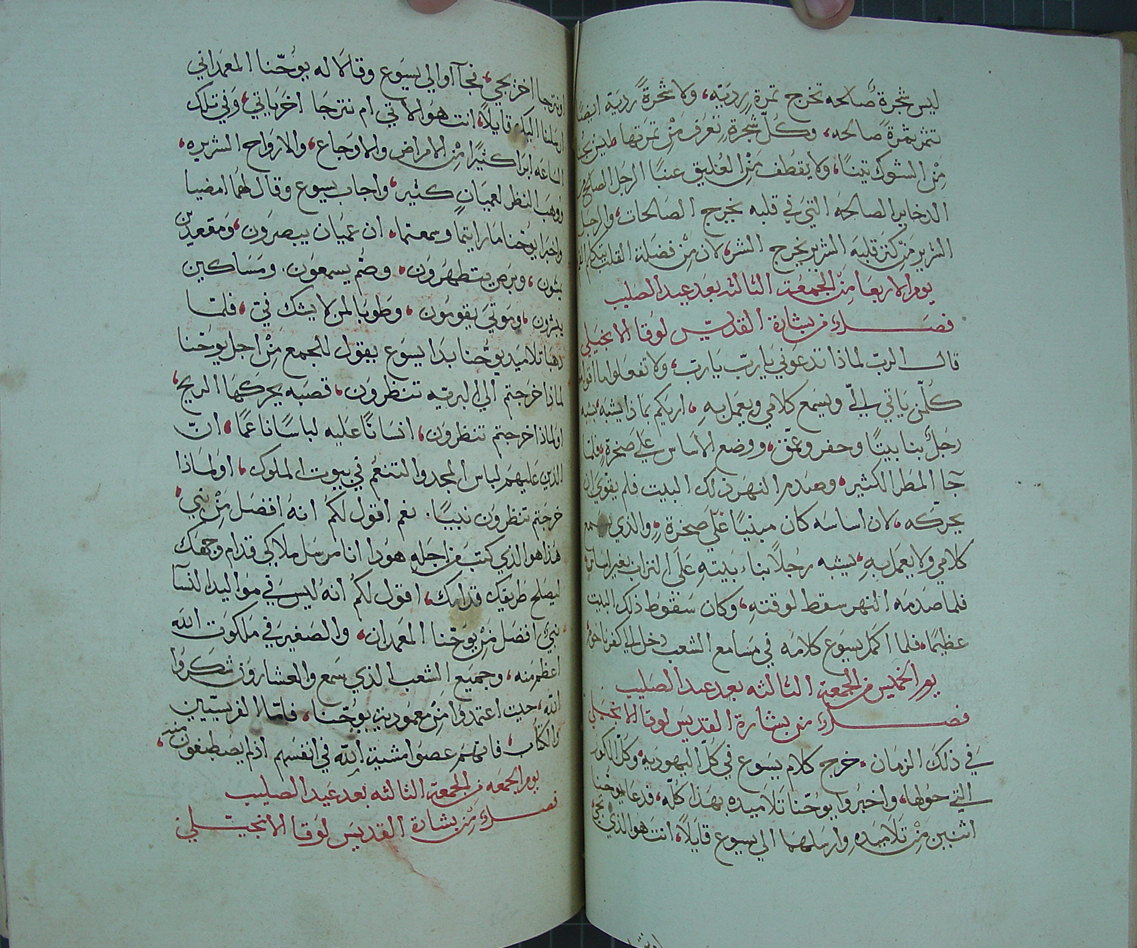 ليس شجرة صالحه تخرج ثمرة رديه، ولا شجرة رديه ايضا
تثمر ثمرة صالحه، وكل شجرة تعرف من ثمرتها ليس يجنا
من الشوك تينا، ولا يقطف من العليق عنبا الرجل الصالح من
الدخاير الصالحه التي في قلبه يخرج الصالحات، والرجل
الشرير من كنز قلبه الشرير يخرج الشر، لان من فضلة القلب يتكلم الفم
يوم الاربعا من الجمعة الثالثه بعد عيد الصليب
فصل من بشارة القديس لوقا الانجيلي
قال الرب لماذا تدعوني يا رب يا رب، ولا تفعلوا ما اقول
كل من ياتي الي ويسمع كلامي ويعمل به، اريكم بماذا يشبه، يشبه
رجل بنا بيتا وحفر وعمق، ووضع الاساس على صخرة، فلما
جا المطر الكثير، وصدم النهر ذلك البيت فلم يقوى ان
يحركه، لان اساسه كان مبنيا على صخرة، والذي يسمع
كلامي ولا يعمل به، يشبه رجلا بنا بيته على التراب بغير اساس
فلما صدمه النهر سقط لوقته، وكان سقوط ذلك البيت
عظيما، فلما اكمل يسوع كلامه في مسامع الشعب دخل الى كفرناحوم
يوم الخميس من الجمعة الثالثه بعد عيد الصليب
فصل من بشارة القديس لوقا الانجيلي
في ذلك الزمان، خرج كلام يسوع في كل اليهوديه، وكل الكور
التي حولها، واخبروا يوحنا تلاميذه بهذا كله، فدعا يوحنا
اثنين من تلاميذه وارسلهما الى يسوع قايلا، انت هو الذي يجي
او نترجا اخر يجي، فجآ اوالي يسوع وقالا له يوحنا المعمداني
ارسلنا اليك قايلا، انت هو الاتي ام نترجا اخر ياتي، وفي تلك
الساعه ابرا كثيرا من الامراض والاوجاع، والارواح الشريره،
ووهب النظر لعميان كثير، واجاب يسوع وقال لهما امضيا
واخبرا يوحنا ما رايتما وسمعتما، ان عميان يبصرون، ومقعدين
يمشون، وبرص يتطهرون، وصم يسمعون، ومساكين
يبشرون، وموتى يقومون، وطوبا لمن لا يشك في، فلما
ذهبا تلاميذ يوحنا بدا يسوع يقول للجمع من اجل يوحنا
لماذا خرجتم الى البريه تنظرون، قصبه يحركها الريح،
اولماذا خرجتم تنظرون، انسانا عليه لباسا ناعما، ان
الذين عليهم لباس المجد والتنعم في بيوت الملوك، اولماذا
خرجتم تنظرون نبيا، نعم اقول لكم انه افضل من نبي،
هذا هو الذي كتب من اجله هوذا انا مرسل ملاكي قدام وجهك
ليصلح طريقك قدامك، اقول لكم انه ليس في مواليد النسآ
نبي افضل من يوحنا المعمدان، والصغير في ملكوت الله
اعظم منه، وجميع الشعب الذي سمع والعشارون شكروا
الله، حيث اعتمدوا من معمودية يوحنا، فاما الفريسيين
والكتاب، فانهم عصوا مشية الله في انفسهم اذ لم يصطبغوا منه
يوم الجمعه من الجمعة الثالثه بعد عيد الصليب
فصل من بشارة القديس لوقا الانجيلي